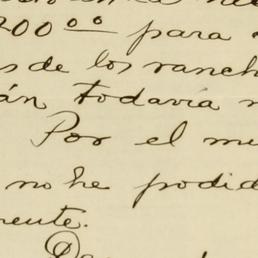 200 00 para
de los ranch
án todavía
Por el m
no he podid
mente.